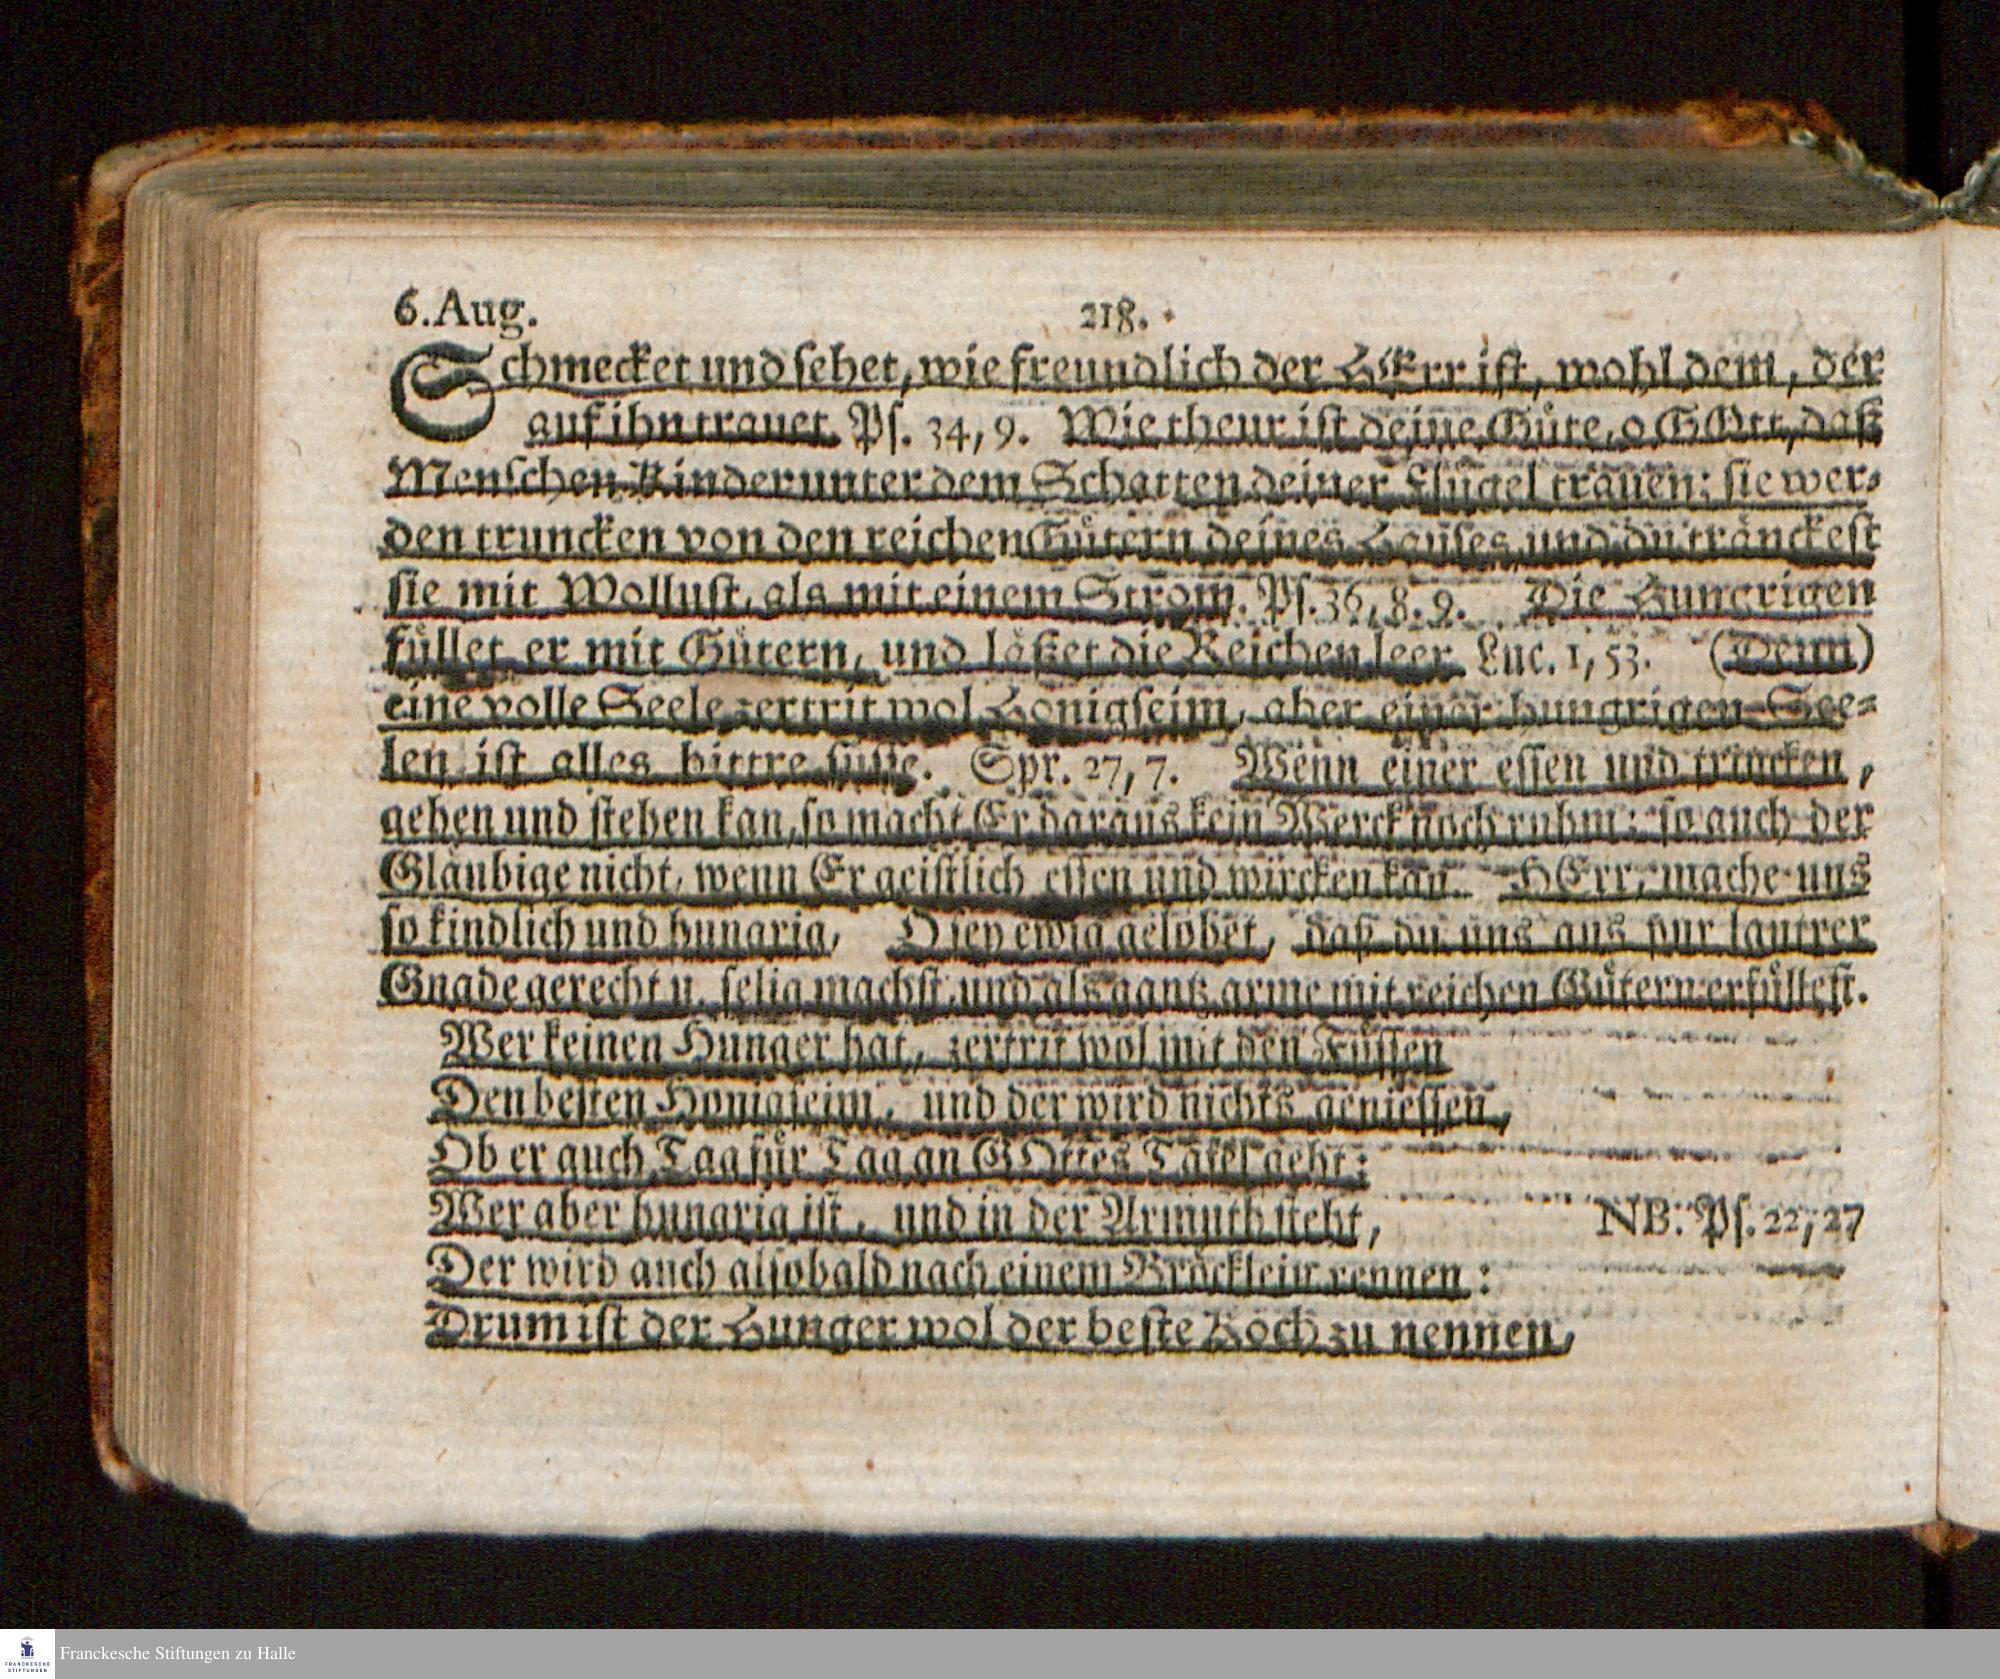 6. Aug. 218.
Schmecket und sehet, wie freundlich der HErr ist, wohl dem, der
auf ihn trauet. Ps. 34, 9. Wie theur ist deine Güte, o GOtt, daß
Menschen-Kinder unter dem Schatten deiner Flügel trauen; sie wer-
den truncken von den reichen Gütern deines Hauses, und du tränckest
sie mit Wollust, als mit einem Strom. Ps. 36, 8. 9. Die Hungrigen
füllet er mit Gütern, und läßet die Reichen leer. Luc. 1, 53. (Denn)
eine volle Seele zertrit wol Honigseim, aber einer hungrigen See-
len ist alles bittre süsse. Spr. 27, 7. Wenn einer essen und trincken,
gehen und stehen kan, so macht Er daraus kein Werck noch ruhm: so auch der
Gläubige nicht, wenn Er geistlich essen und wircken kan. HErr, mache uns
so kindlich und hungrig, O sey ewig gelobet, daß du uns aus pur lautrer
Gnade gerecht u. selig machst, und als gantz arme mit reichen Gütern erfüllest.
Wer keinen Hunger hat, zertrit wol mit den Füssen
Den besten Honigseim, und der wird nichts geniessen,
Ob er auch Tag für Tag an GOttes Tafel geht:
Wer aber hungrig ist, und in der Armuth steht, NB. Ps. 22, 27
Der wird auch alsobald nach einem Bröcklein rennen:
Drum ist der Hunger wol der beste Koch zu nennen,
FRANCKESCHE
STIFTUNGEN
Franckesche Stiftungen zu Halle